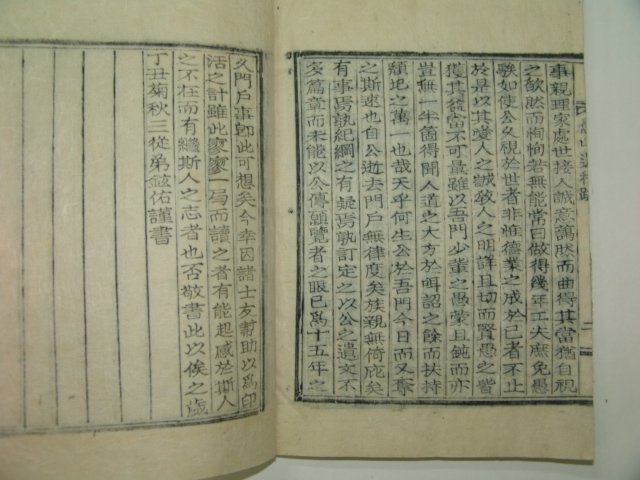 事親理家處世接人誠意藹然而曲得其當猶自視
之歉然而恂恂若無能常曰做得幾年工夫庶免愚
騃如使公久視於世者非惟德業之成於己者不止
於是以其愛人之誠敎人之明詳且切而賢愚之皆
獲其復當不可量雖以吾門少輩之愚蒙且鈍而亦
豈無一半箇得聞人道之大方於唔認之餘而扶持
頹圮之萬一也哉天乎何生公於吾門今日而又奪
之斯速也自公逝去門戶無律度矣族親無倚庇矣
有事焉孰紀綱之有疑焉孰訂定之以公之遺文不
多篇章而未能以公傳願覽者之眼已爲十五年之
久門戶事卽此可想矣今幸因諸士友幇助以爲印
活之計雖此寥寥一局而讀之者有能起感於斯人
之不在而有繼斯人之志者也否敬書此以俟之歲
丁丑菊秋三從弟鉉佑謹書